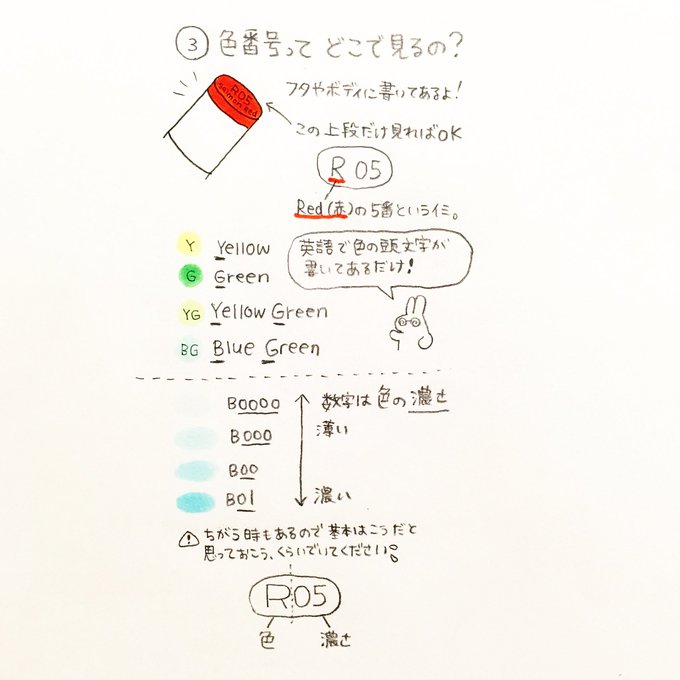 ③ 色番号って どこで見るの?
R05
salmon red
フタやボディに書いてあるよ!
この上段だけ見ればOK
R 05
Red(赤)の5番というイミ。
Y Yellow
G Green
YG Yellow Green
BG Blue Green
英語で色の頭文字が
書いてあるだけ!
B0000
数字は色の濃さ
薄い
B000
B00
B01
濃い
ちがう時もあるので基本はこうだと
思っておこう、くらいでいてください
R05
色 濃さ